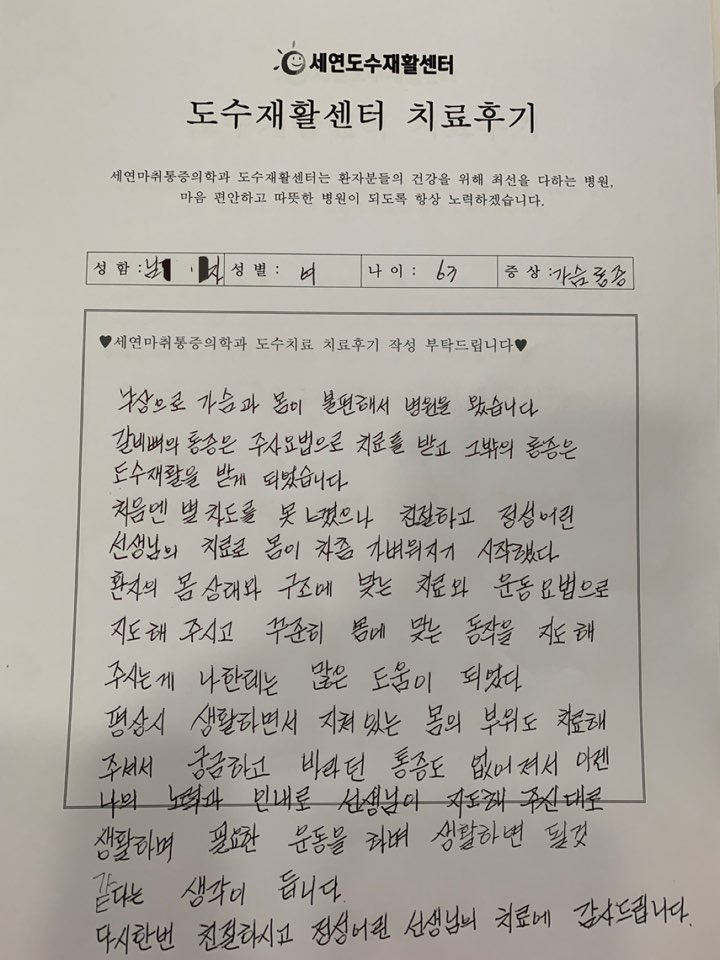 세연도수재활센터
도수재활센터 치료후기
세연마취통증의학과 도수재활센터는 환자분들의 건강을 위해 최선을 다하는 병원,
마음 편안하고 따뜻한 병원이 되도록 항상 노력하겠습니다.
성 함 : 남 성 별 : 여 나 이 : 63 증 상 : 가슴통증
♥세연마취통증의학과 도수치료 치료후기 작성 부탁드립니다♥
낙상으로 가슴과 몸이 불편해서 병원을 왔습니다
갈비뼈의 통증은 주사요법으로 치료를 받고 그밖의 통증은
도수재활을 받게 되었습니다.
처음엔 별 차도를 못 느꼈으나 친절하고 정성어린
선생님의 치료로 몸이 차츰 가벼워지기 시작했다
환자의 몸 상태와 구조에 맞는 치료와 운동요법으로
지도해 주시고 꾸준히 몸에 맞는 동작을 지도해
주시는게 나한테는 많은 도움이 되었다
평상시 생활하면서 지쳐있는 몸의 부위도 치료해
주셔서 궁금하고 바라던 통증도 없어져서 이젠
나의 노력과 인내로 선생님이 지도해 주신대로
생활하며 필요한 운동을 하며 생활하면 될것
같다는 생각이 듭니다.
다시한번 친절하시고 정성어린 선생님의 치료에 감사드립니다.